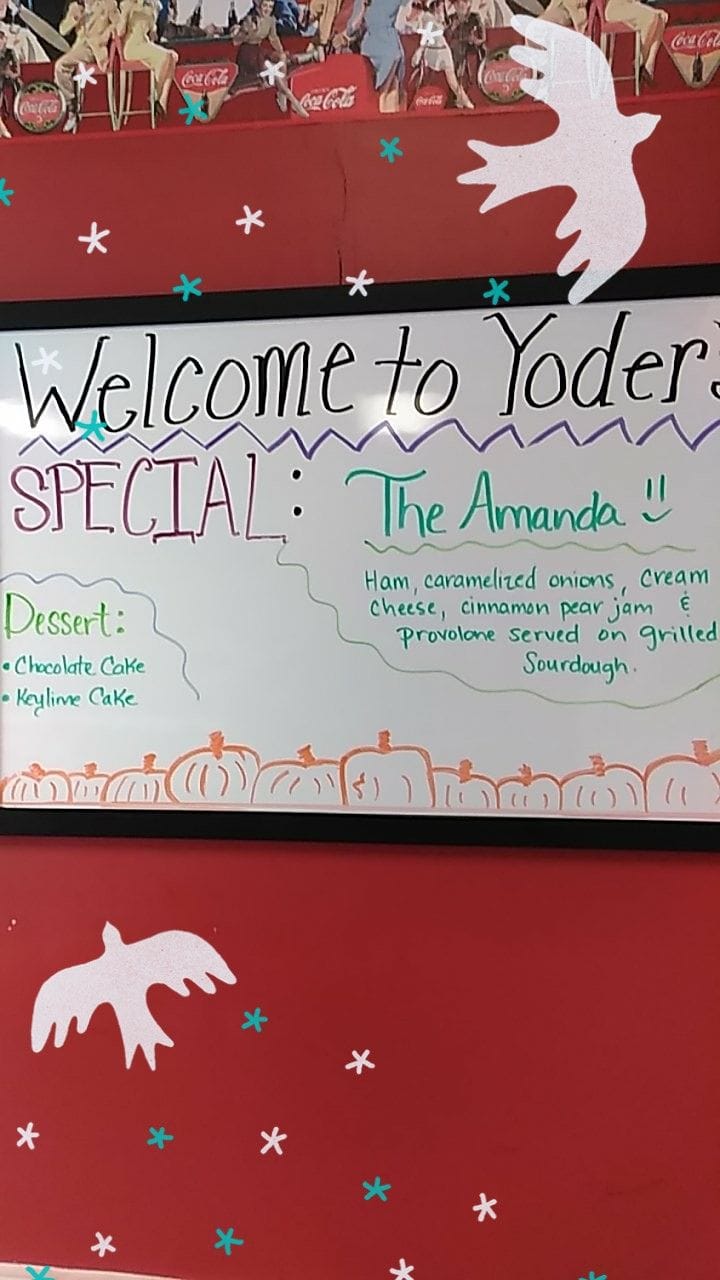 Coca-Cola
Coca-Cola
Coca-Cola
Coca-Cola
Coca-Cola
Coca-Cola
Welcome to Yoder's
SPECIAL: The Amanda !!
Ham, caramelized onions, cream
cheese, cinnamon pear jam &
provolone served on grilled
Sourdough.
Dessert:
• Chocolate Cake
• Keylime Cake